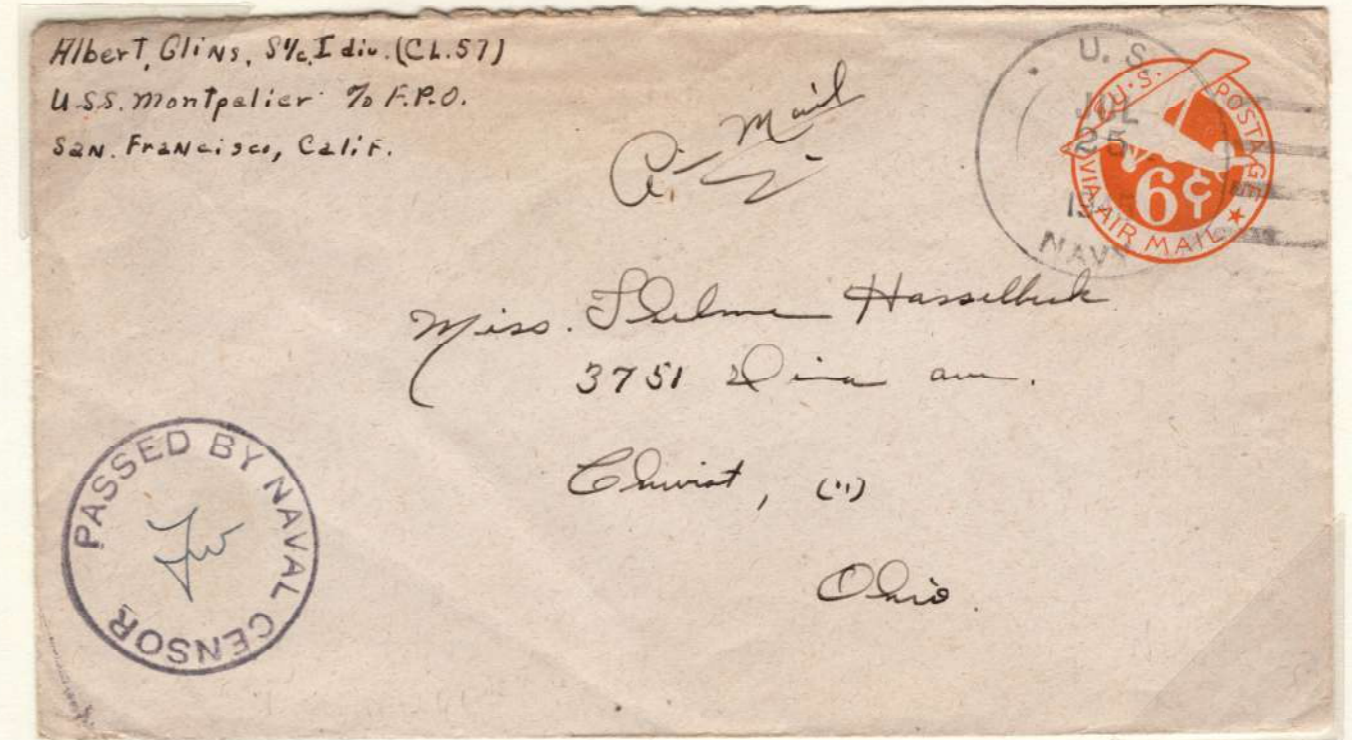 Albert, Glins, S1/c, I div. (CL.57)
U.S.S. Montpelier c/o F.P.O.
San. Francisco, Calif.
Air Mail
U. S.
JUL
25
NAVY
U.S. POSTAGE
6¢
VIA AIR MAIL
Miss. Thelma Hasselbeck
3751 ave.
Cheviot, (11)
Ohio.
PASSED BY NAVAL CENSOR